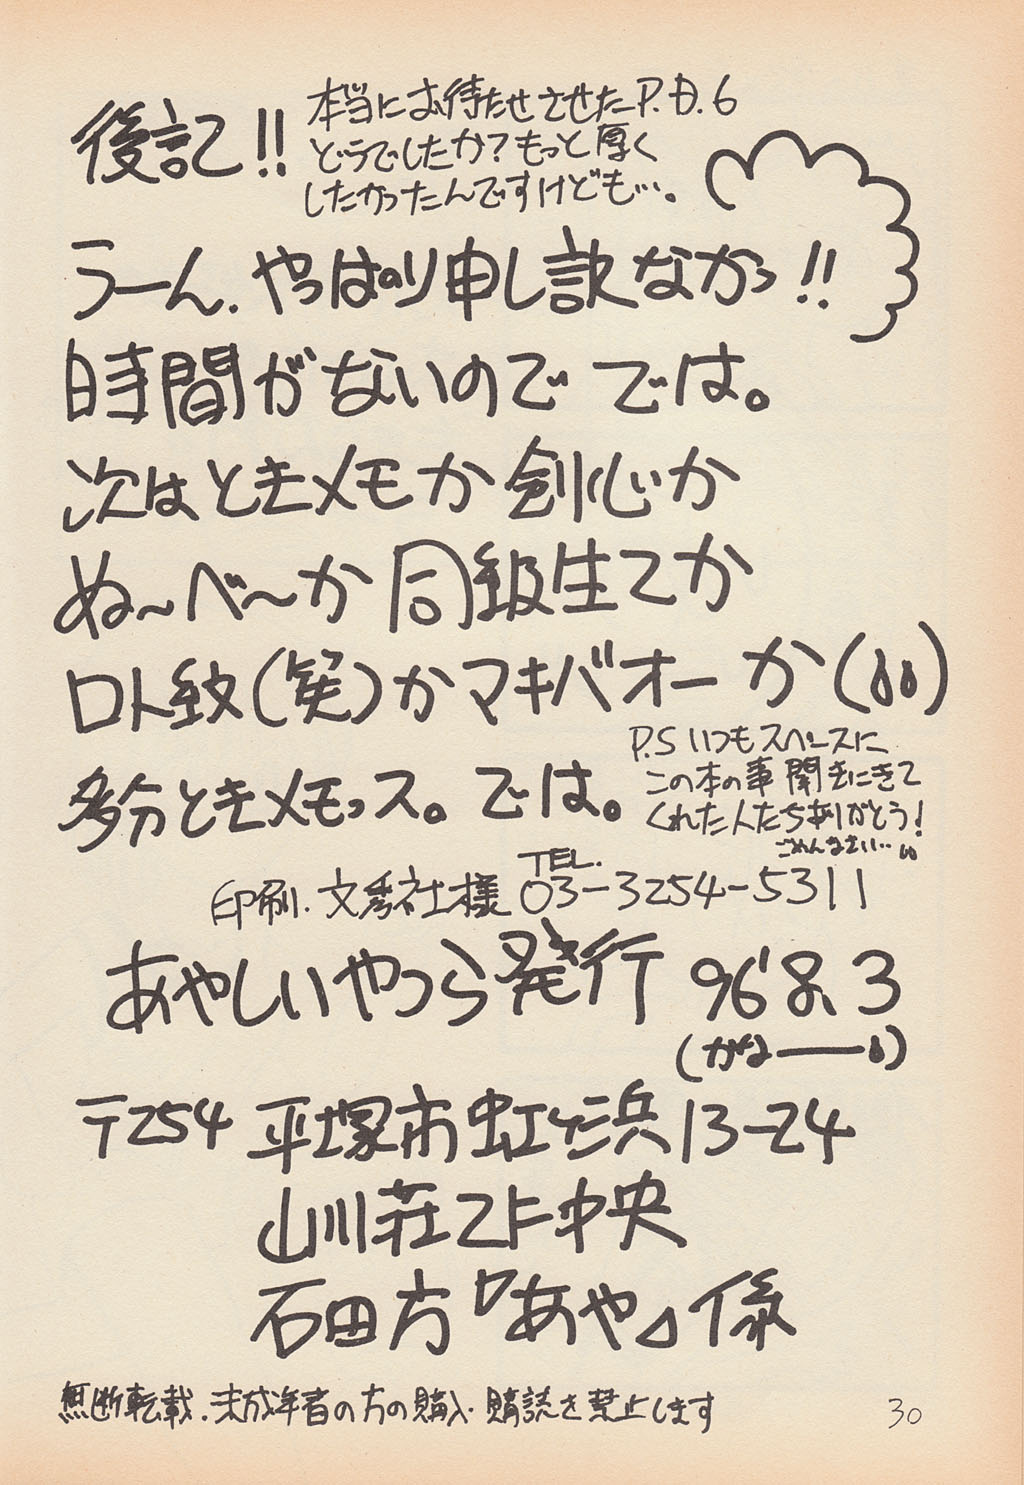 後記!!
本当にお待たせさせたP.D.6
どうでしたか?もっと厚く
したかったんですけども…。
うーん.やっぱり申し訳なかっ!!
時間がないので では。
次はときメモか剣心か
ぬ〜べ〜か同級生2か
ロト紋(笑)かマキバオーか(
多分ときメモっス。では。
P.S いつもスペースに
この本の事聞きにきて
くれた人たちありがとう!
ごめんなさい…
TEL.
印刷.文秀社様 03-3254-5311
あやしいやつら発行 96'8、3
(かなーー)
〒254 平塚市虹ヶ浜13-24
山川荘2F中央
石田方『あや』係
無断転載.未成年者の方の購入.購読を禁止します
30